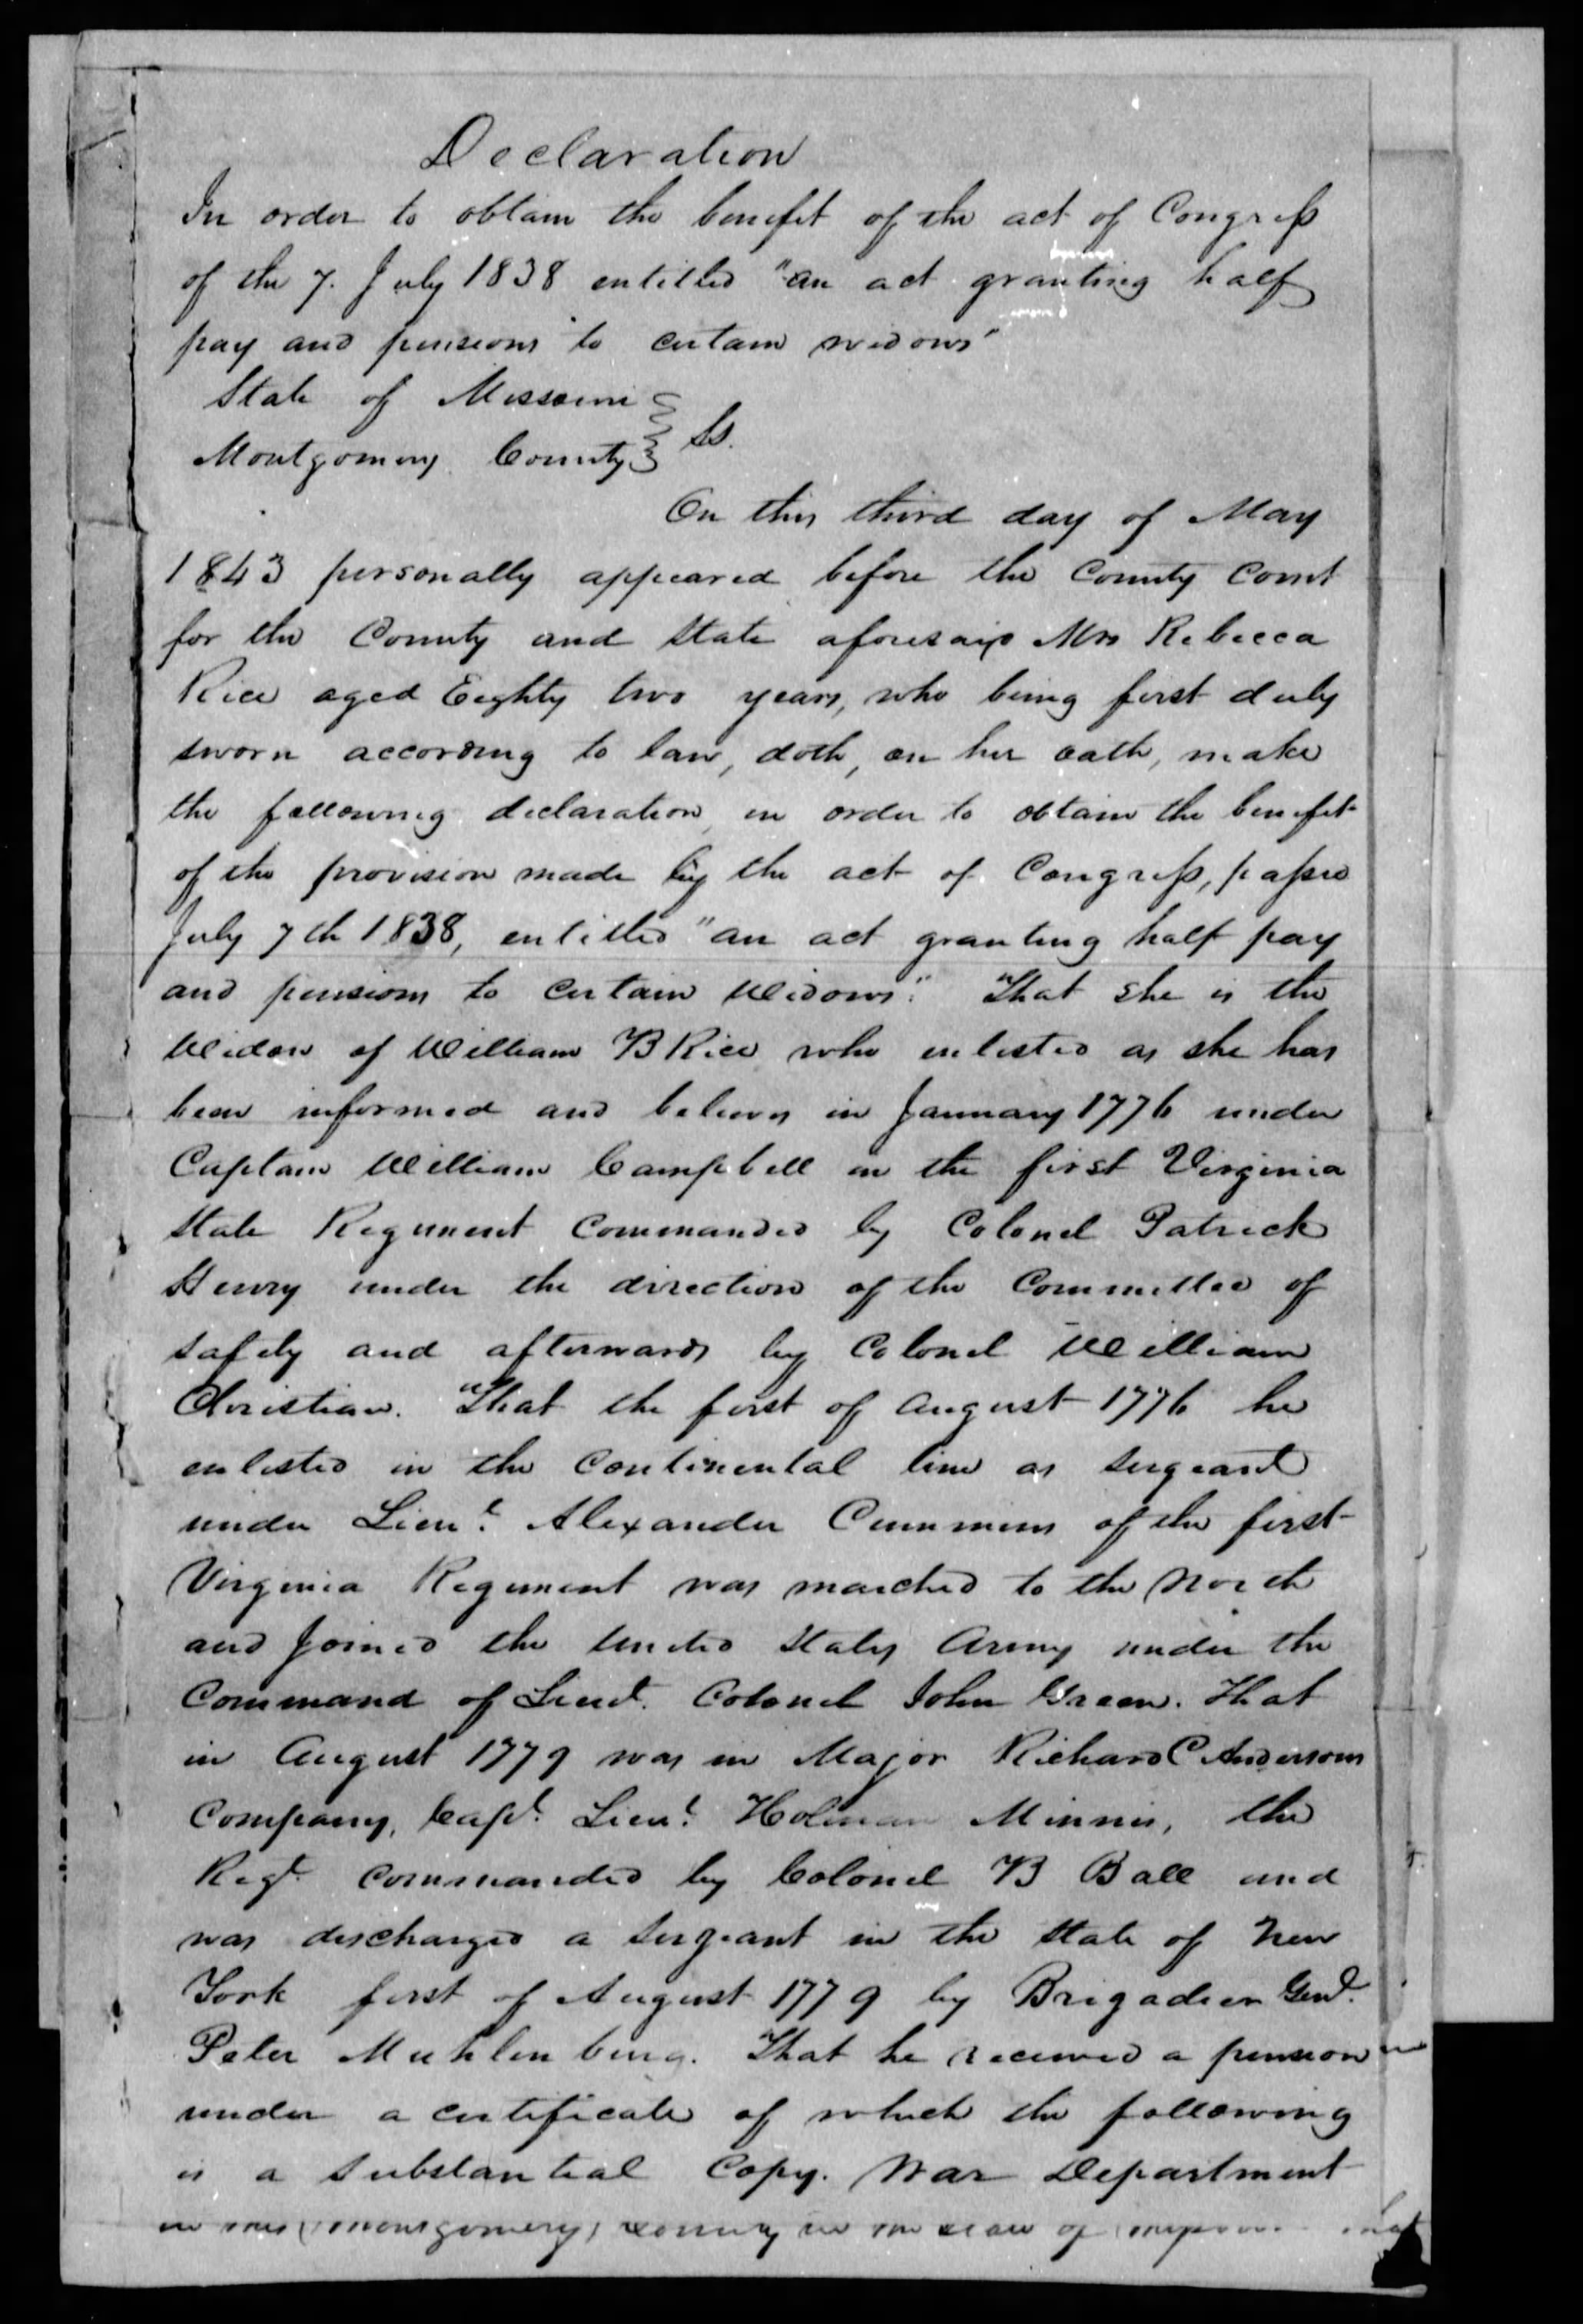 Declaration
In order to obtain the benefit of the act of Congress
of the 7. July 1838 entitled "an act granting half
pay and pensions to certain widows"
State of Missouri
Montgomery County } Ss.
On this third day of May
1843 personally appeared before the County Court
for the County and State aforesaid Mrs Rebecca
Rice aged Eighty two years, who being first duly
sworn according to law, doth, on her oath, make
the following declaration in order to obtain the benefit
of the provision made by the act of Congress, passed
July 7th 1838, entitled "an act granting half pay
and pensions to certain Widows." That she is the
Widow of William B Rice who enlisted as she has
been informed and believes in January 1776 under
Captain William Campbell in the first Virginia
State Regiment Commanded by Colonel Patrick
Henry under the direction of the Committee of
Safety and afterwards by Colonel William
Christian. That the first of August 1776 he
enlisted in the Continental line as Sergeant
under Lieut. Alexander Cummins of the first
Virginia Regiment was marched to the North
and Joined the United States Army under the
Command of Lieut. Colonel John Green. That
in August 1779 was in Major Richard C Andersons
Company, Capt. Lieut. Holman Minnis, the
Regt. Commanded by Colonel B Ball and
was discharged a Sergeant in the State of New
York first of August 1779 by Brigadier Genl.
Peter Muhlenberg. That he received a pension
under a certificate of which the following
is a Substantial Copy. War Department
(Montgomery) County in the State of